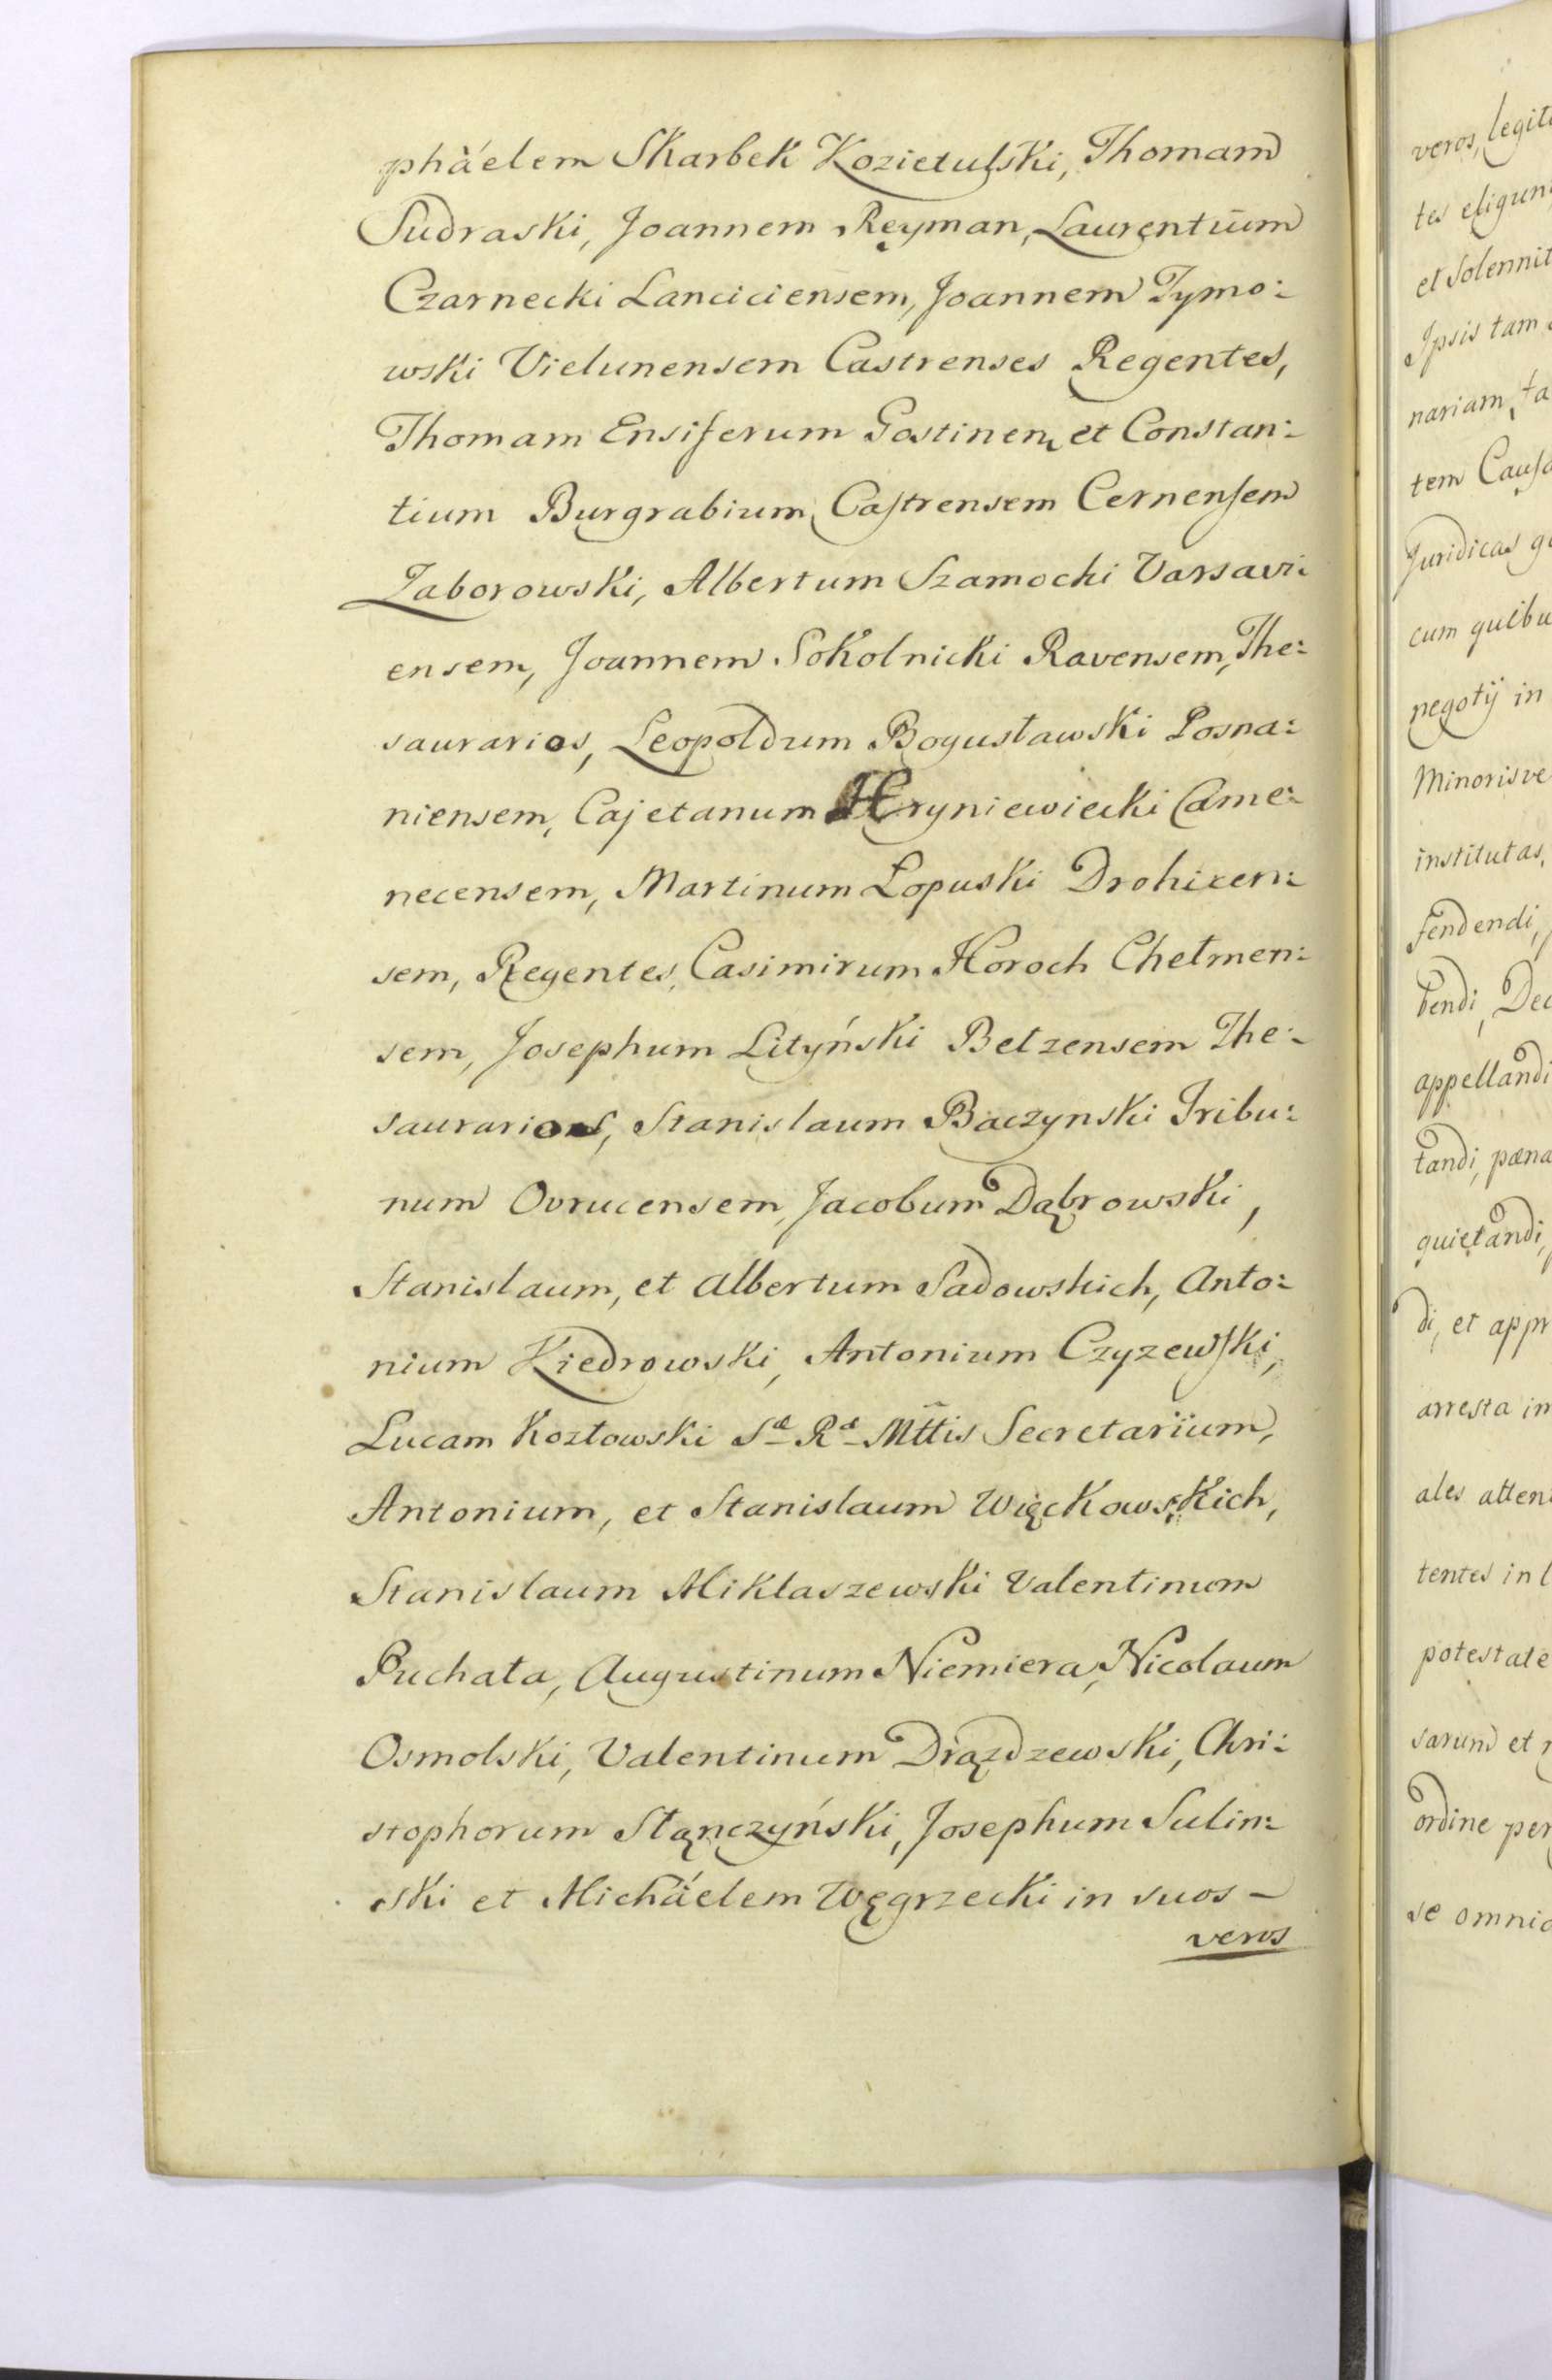 phàelem Skarbek Kozietulski, Thomam
Sudraski, Joannem Reyman, Laurentium
Czarnecki Lanciciensem, Joannem Tymo:
wski Vielunensem Castrenses Regentes,
Thomam Ensiferum Gostinen, et Constan:
tium Burgrabium Castrensem Cernensem
Zaborowski, Albertum Szamocki Varsavi:
ensem, Joannem Sokolnicki Ravensem, The:
saurarios, Leopoldum Bogusławski Posna:
niensem, Cajetanum Hryniewiecki Came:
necensem, Martinum Łopuski Drohicen:
sem, Regentes, Casimirum Horoch Chełmen:
sem, Josephum Lityński Belzensem The:
saurarios, Stanislaum Baczynski Tribu:
num Ovrucensem, Jacobum Dąbrowski,
Stanislaum, et Albertum Sadowskich, Anto:
nium Kiedrowski, Antonium Czyzewski,
Lucam Kozłowski Sa Ra Mttis Secretarium,
Antonium, et Stanislaum Więckowskich,
Stanislaum Mikłaszewski Valentinum
Puchała, Augustinum Niemiera, Nicolaum
Osmolski, Valentinum Drązdzewski, Chri:
stophorum Stanczyński, Josephum Sulin:
ski et Michàelem Węgrzecki in suos –
veros
veros, legit
tes eligun
et Solennit
Ipsis tam
nariam, ta
tem Causa
Juridicas g
cum quibu
negotij in
Minorisve
institutas,
fendendi,
bendi, Dec
appellandi
tandi, pæna
quietandi,
di, et appr
arresta in
ales atten
tentes in l
potestate
sarum et
ordine per
se omnia